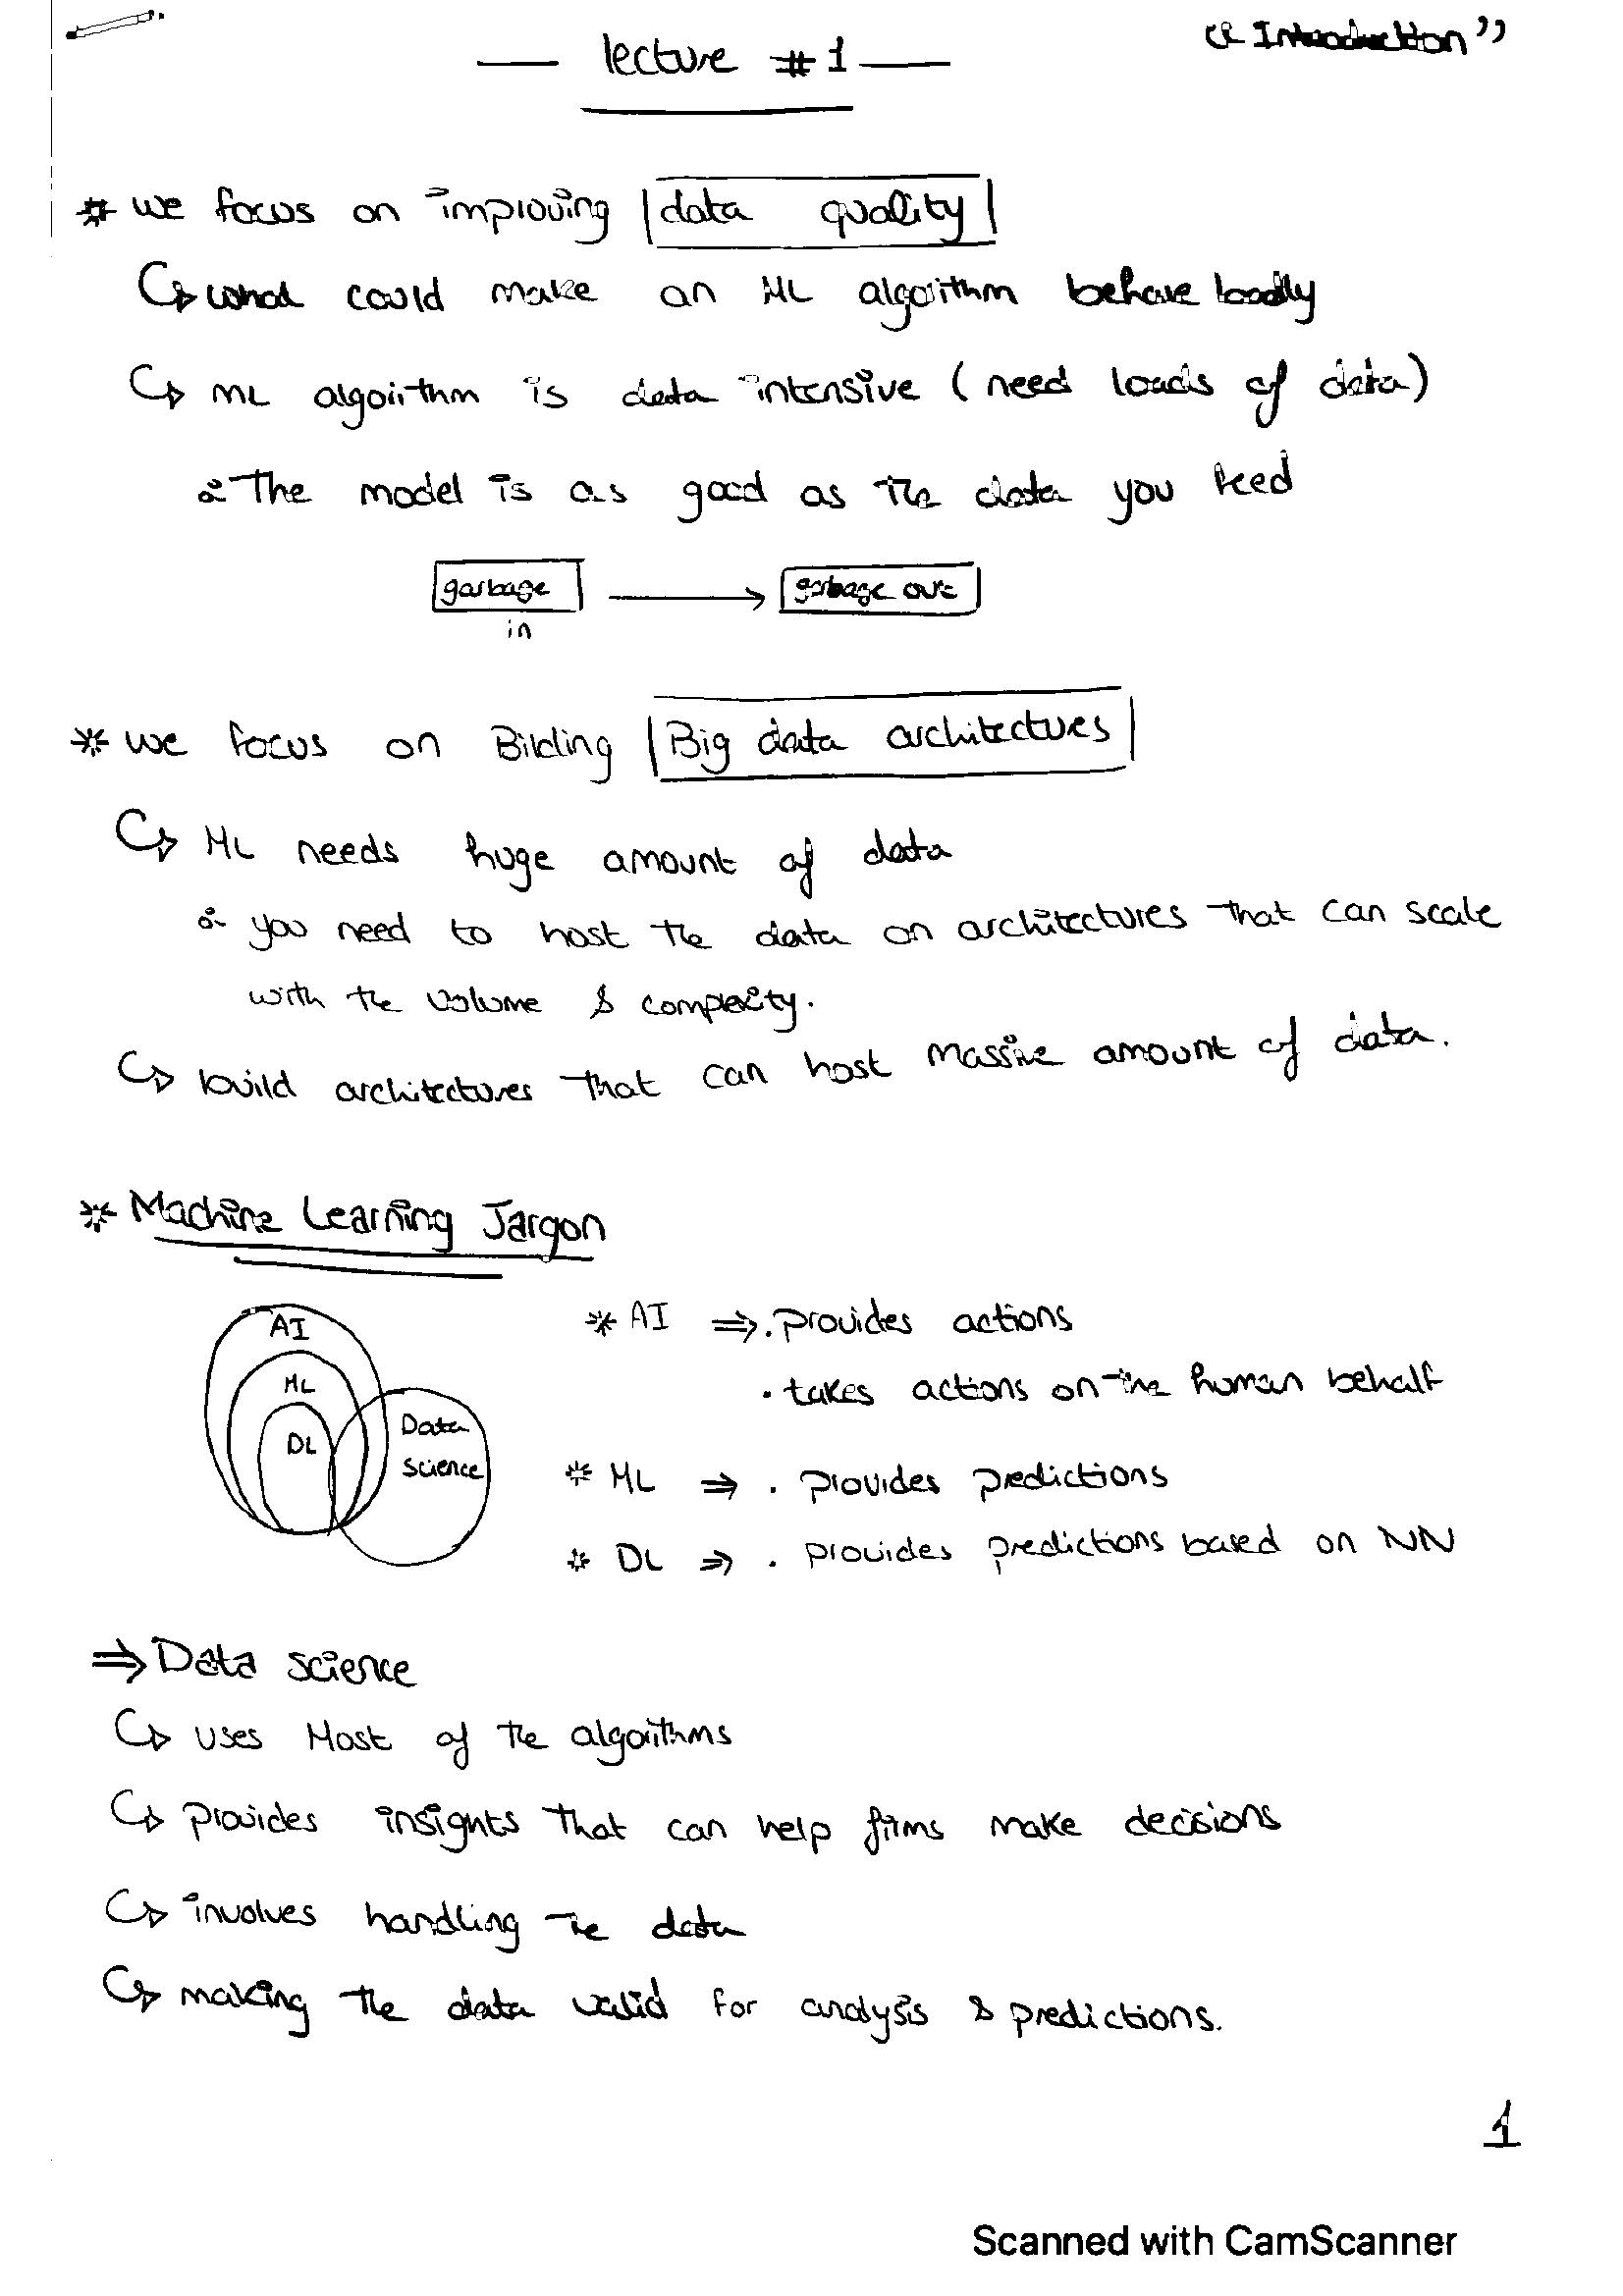 "Introduction"
— lecture #1 —
* we focus on improving data quality
↳ what could make an ML algorithm behave badly
↳ ML algorithm is data intensive (need loads of data)
∴ The model is as good as the data you feed
garbage in → garbage out
* we focus on Bilding Big data architectures
↳ ML needs huge amount of data
∴ you need to host the data on architectures that can scale
with the volume & complexity.
↳ build architectures that can host massive amount of data.
* Machine Learning Jargon
AI
ML
DL
Data
science
* AI ⇒ . provides actions
. takes actions on the human behalf
* ML ⇒ . provides predictions
* DL ⇒ . provides predictions based on NN
⇒ Data science
↳ uses Most of the algorithms
↳ provides insights that can help firms make decisions
↳ involves handling the data
↳ making the data valid for analysis & predictions.
1
Scanned with CamScanner